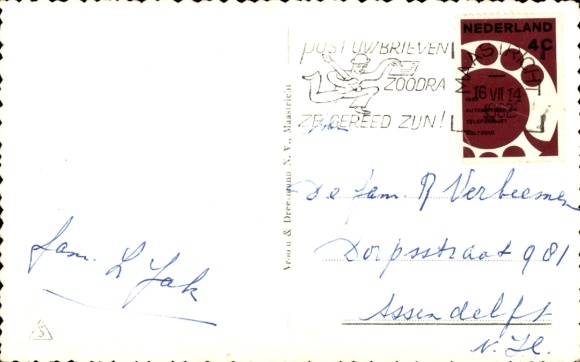 POST UW BRIEVEN
ZOODRA
ZE GEREED ZIJN!
MAASTRICHT
16 VII 14
1962
NEDERLAND
4C
1962
AUTOMATISERING
TELEFOONNET
VOLTOOID
Vroom & Dreesmann N.V., Maastricht
De fam. R Verbeemen
Dorpsstraat 981
Assendelft
N. H.
fam. L Jak
S